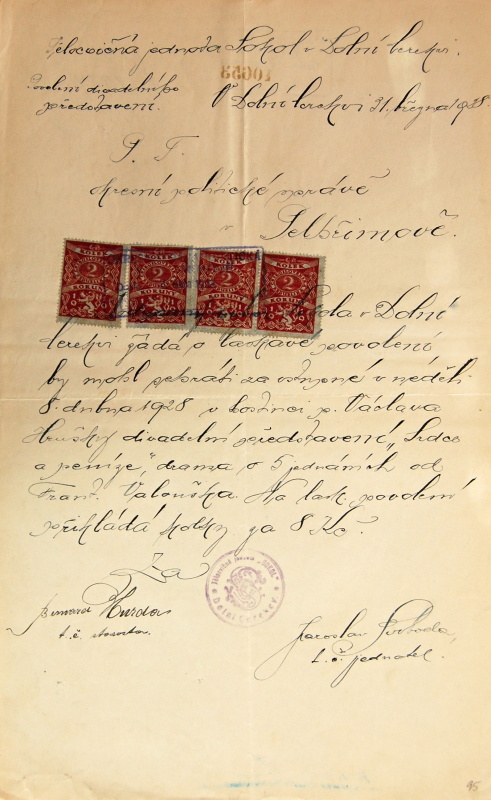 Tělocvičná jednota Sokol v Dolní Cerekvi.
10653
Povolení divadelního
představení.
V Dolní Cerekvi 21. března 1928.
P. T.
okresní politické správě
v
Pelhřimově.
KOLEK KOLEK KOLEK KOLEK
2 2 2 2
KORUNY KORUNY KORUNY KORUNY
Sokola v Dolní
Cerekvi žádá o laskavé povolení
by mohl sehráti za vstupné v neděli
8. dubna 1928 v hostinci p. Václava
Hrušky divadelní představení „Srdce
a peníze", drama o 5 jednáních od
Frant. Valouška. Na lask. povolení
přikládá kolky za 8 Kč.
Za
Hurda
t. č. starosta.
Jaroslav Svoboda,
t. č. jednatel.
95